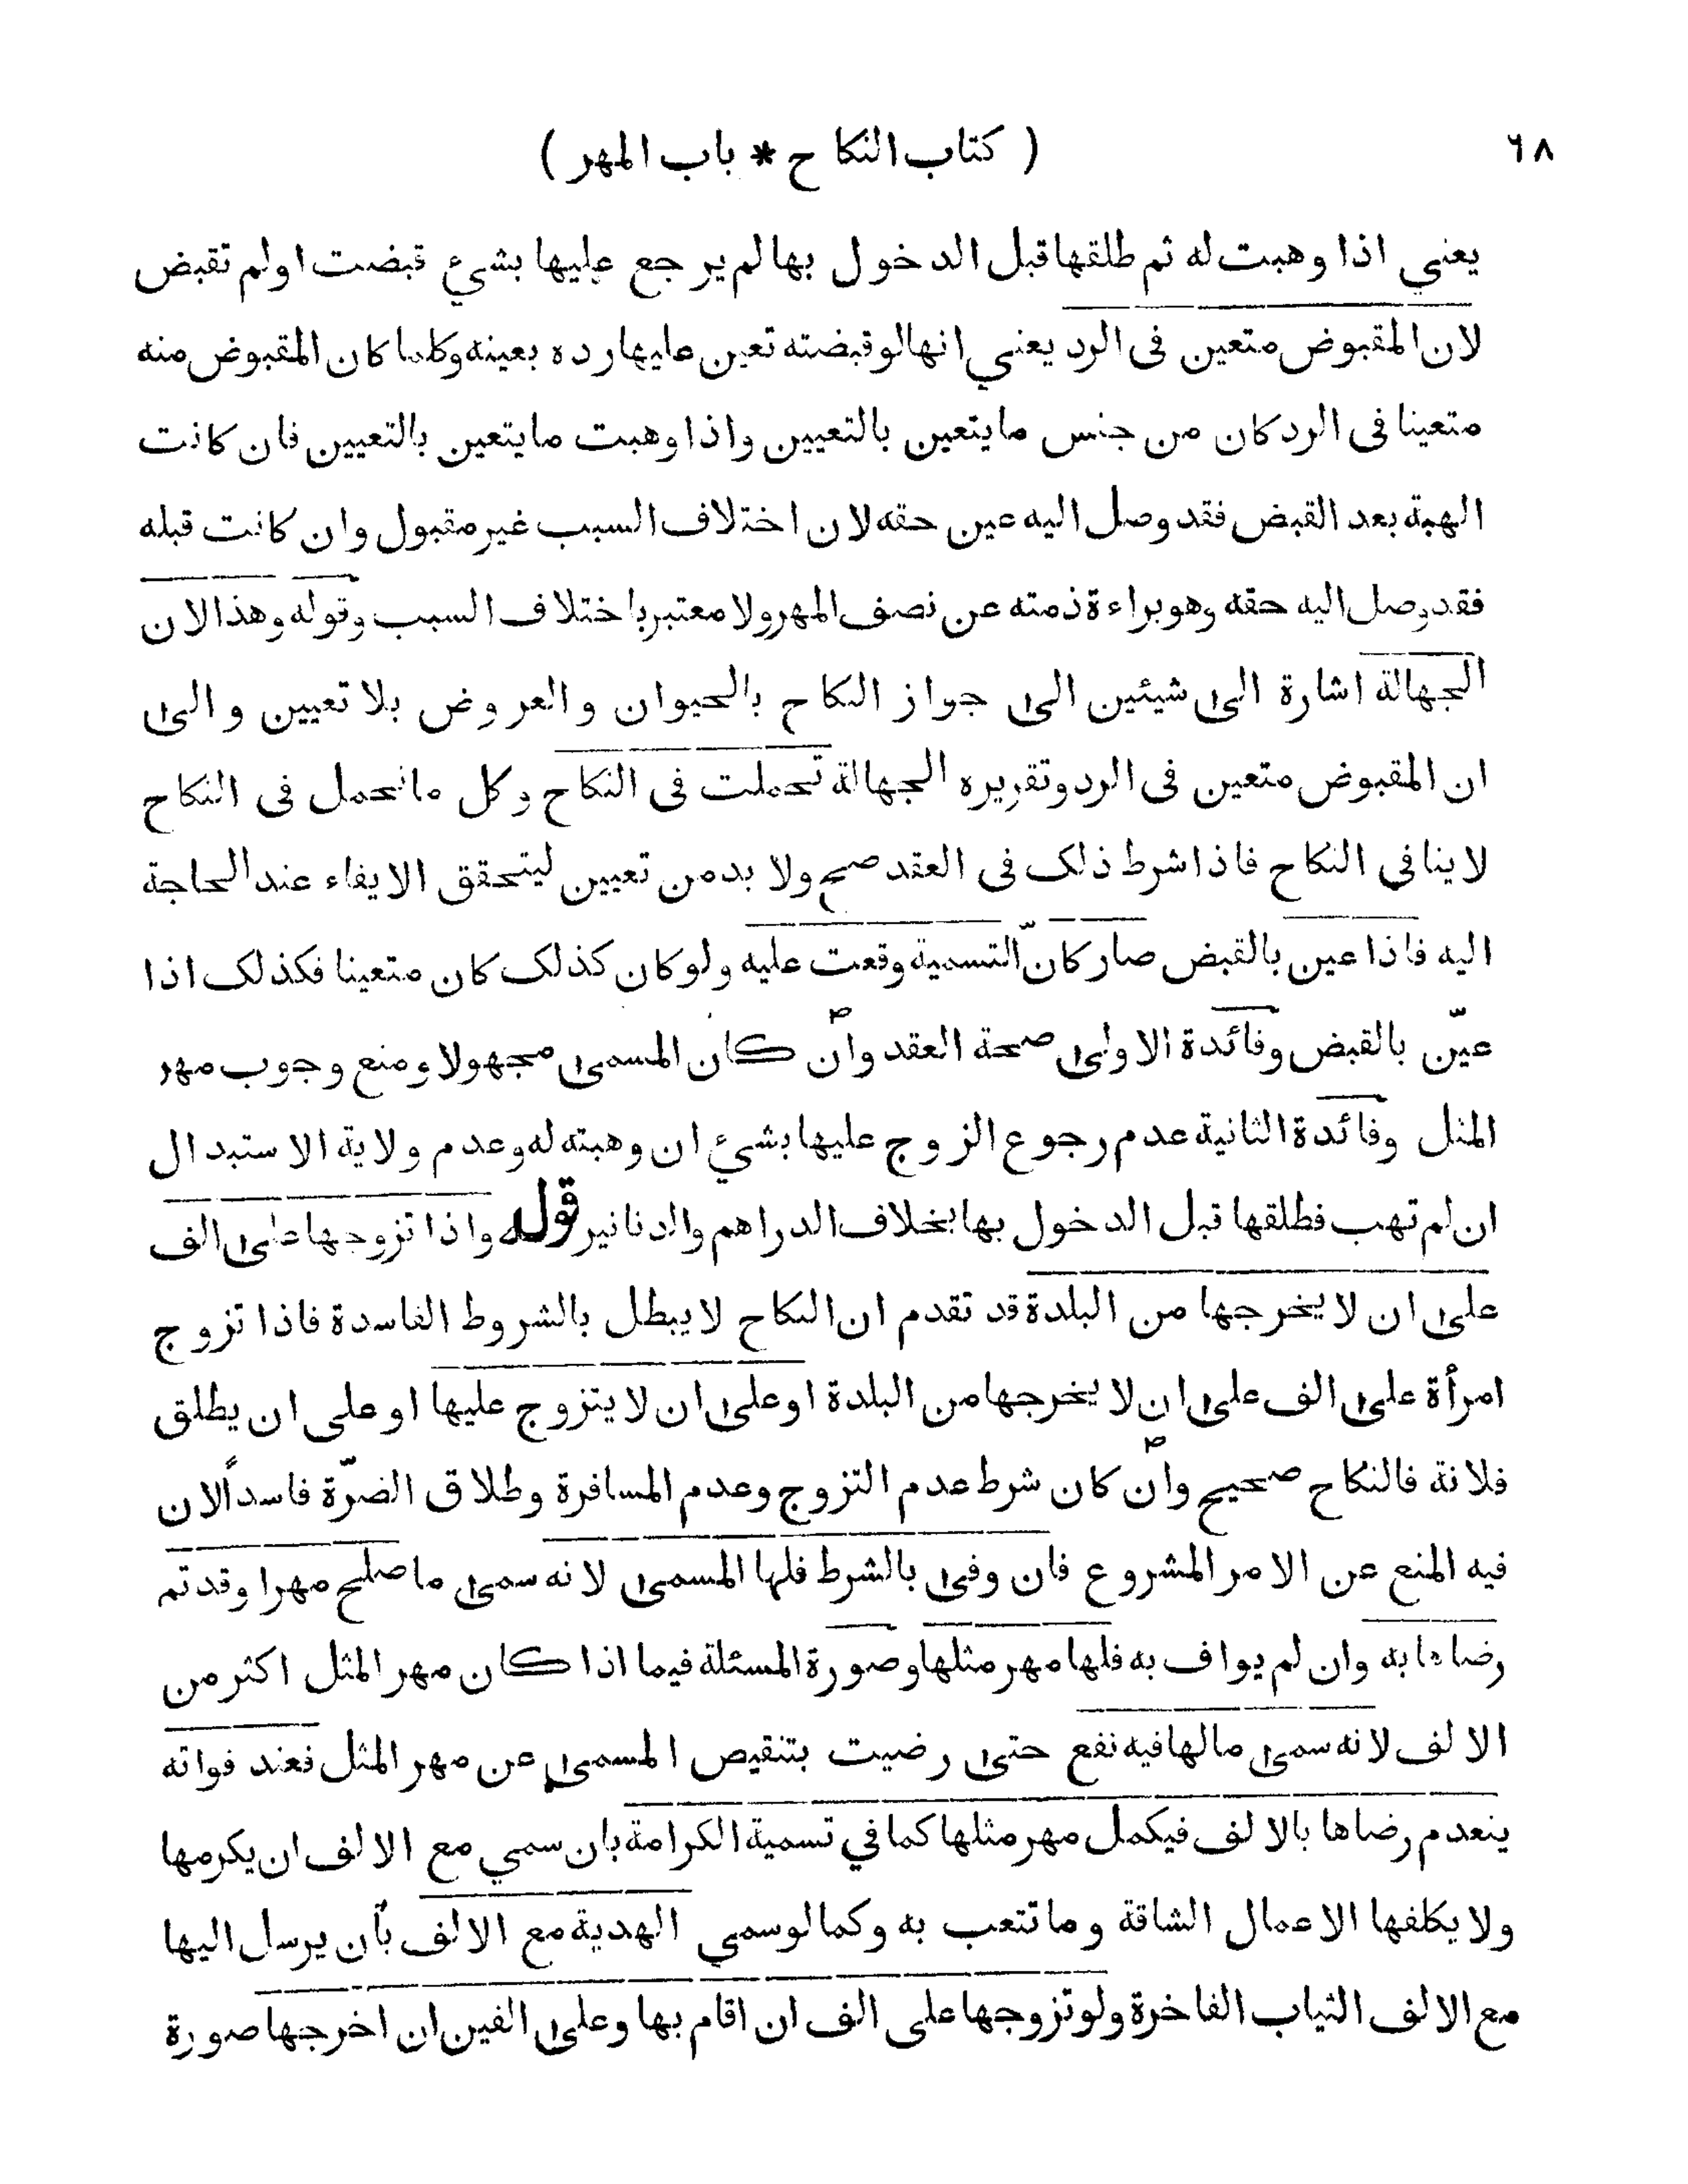 ٦٨ ( كتاب النكاح * باب المهر )
يعني اذا وهبت له ثم طلقها قبل الدخول بها لم يرجع عليها بشيء قبضت اولم تقبض
لان المقبوض متعين فى الرد يعني انها لو قبضته تعين عليها رده بعينه وكلما كان المقبوض منه
متعينا فى الرد كان من جنس ما يتعين بالتعيين واذا وهبت ما يتعين بالتعيين فان كانت
الهبة بعد القبض فقد وصل اليه عين حقه لان اختلاف السبب غير مقبول وان كانت قبله
فقد وصل اليه حقه وهو براءة ذمته عن نصف المهر ولا معتبر باختلاف السبب وقوله وهذا لان
الجهالة اشارة الى شيئين الى جواز النكاح بالحيوان والعروض بلا تعيين والى
ان المقبوض متعين فى الرد وتقريره الجهالة تحملت فى النكاح وكل ما تحمل فى النكاح
لا ينافي النكاح فاذا شرط ذلك فى العقد صح ولا بد من تعيين ليتحقق الايفاء عند الحاجة
اليه فاذا عين بالقبض صار كانّ التسمية وقعت عليه ولو كان كذلك كان متعينا فكذلك اذا
عيّن بالقبض وفائدة الاولى صحة العقد وان كان المسمى مجهولا ومنع وجوب مهر
المثل وفائدة الثانية عدم رجوع الزوج عليها بشيء ان وهبته له وعدم ولاية الاستبدال
ان لم تهب فطلقها قبل الدخول بها بخلاف الدراهم والدنانير قوله واذا تزوجها على الف
على ان لا يخرجها من البلدة قد تقدم ان النكاح لا يبطل بالشروط الفاسدة فاذا تزوج
امرأة على الف على ان لا يخرجها من البلدة او على ان لا يتزوج عليها او على ان يطلق
فلانة فالنكاح صحيح وان كان شرط عدم التزوج وعدم المسافرة وطلاق الضرّة فاسداً لان
فيه المنع عن الامر المشروع فان وفى بالشرط فلها المسمى لانه سمى ما صلح مهرا وقد تم
رضاها به وان لم يواف به فلها مهر مثلها وصورة المسئلة فيما اذا كان مهر المثل اكثر من
الالف لانه سمى ما لها فيه نفع حتى رضيت بتنقيص المسمى عن مهر المثل فعند فواته
ينعدم رضاها بالالف فيكمل مهر مثلها كما في تسمية الكرامة بان سمي مع الالف ان يكرمها
ولا يكلفها الاعمال الشاقة وما تتعب به وكما لو سمي الهدية مع الالف بأن يرسل اليها
مع الالف الثياب الفاخرة ولو تزوجها على الف ان اقام بها وعلى الفين ان اخرجها صورة